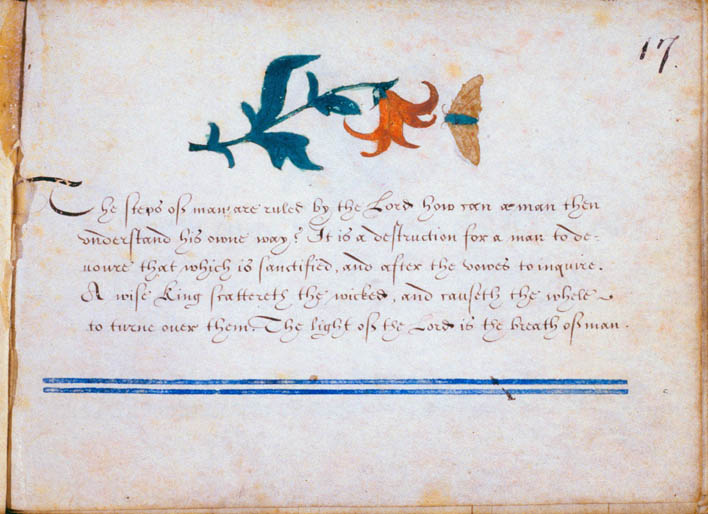 17.
The steps of man are ruled by the Lord how can a man then
vnderstand his owne way? It is a destruction for a man to de-
uoure that which is sanctified, and after the vowes to inquire.
A wise King scattereth the wicked, and causeth the whele
to turne ouer them. The light of the Lord is the breath of man.